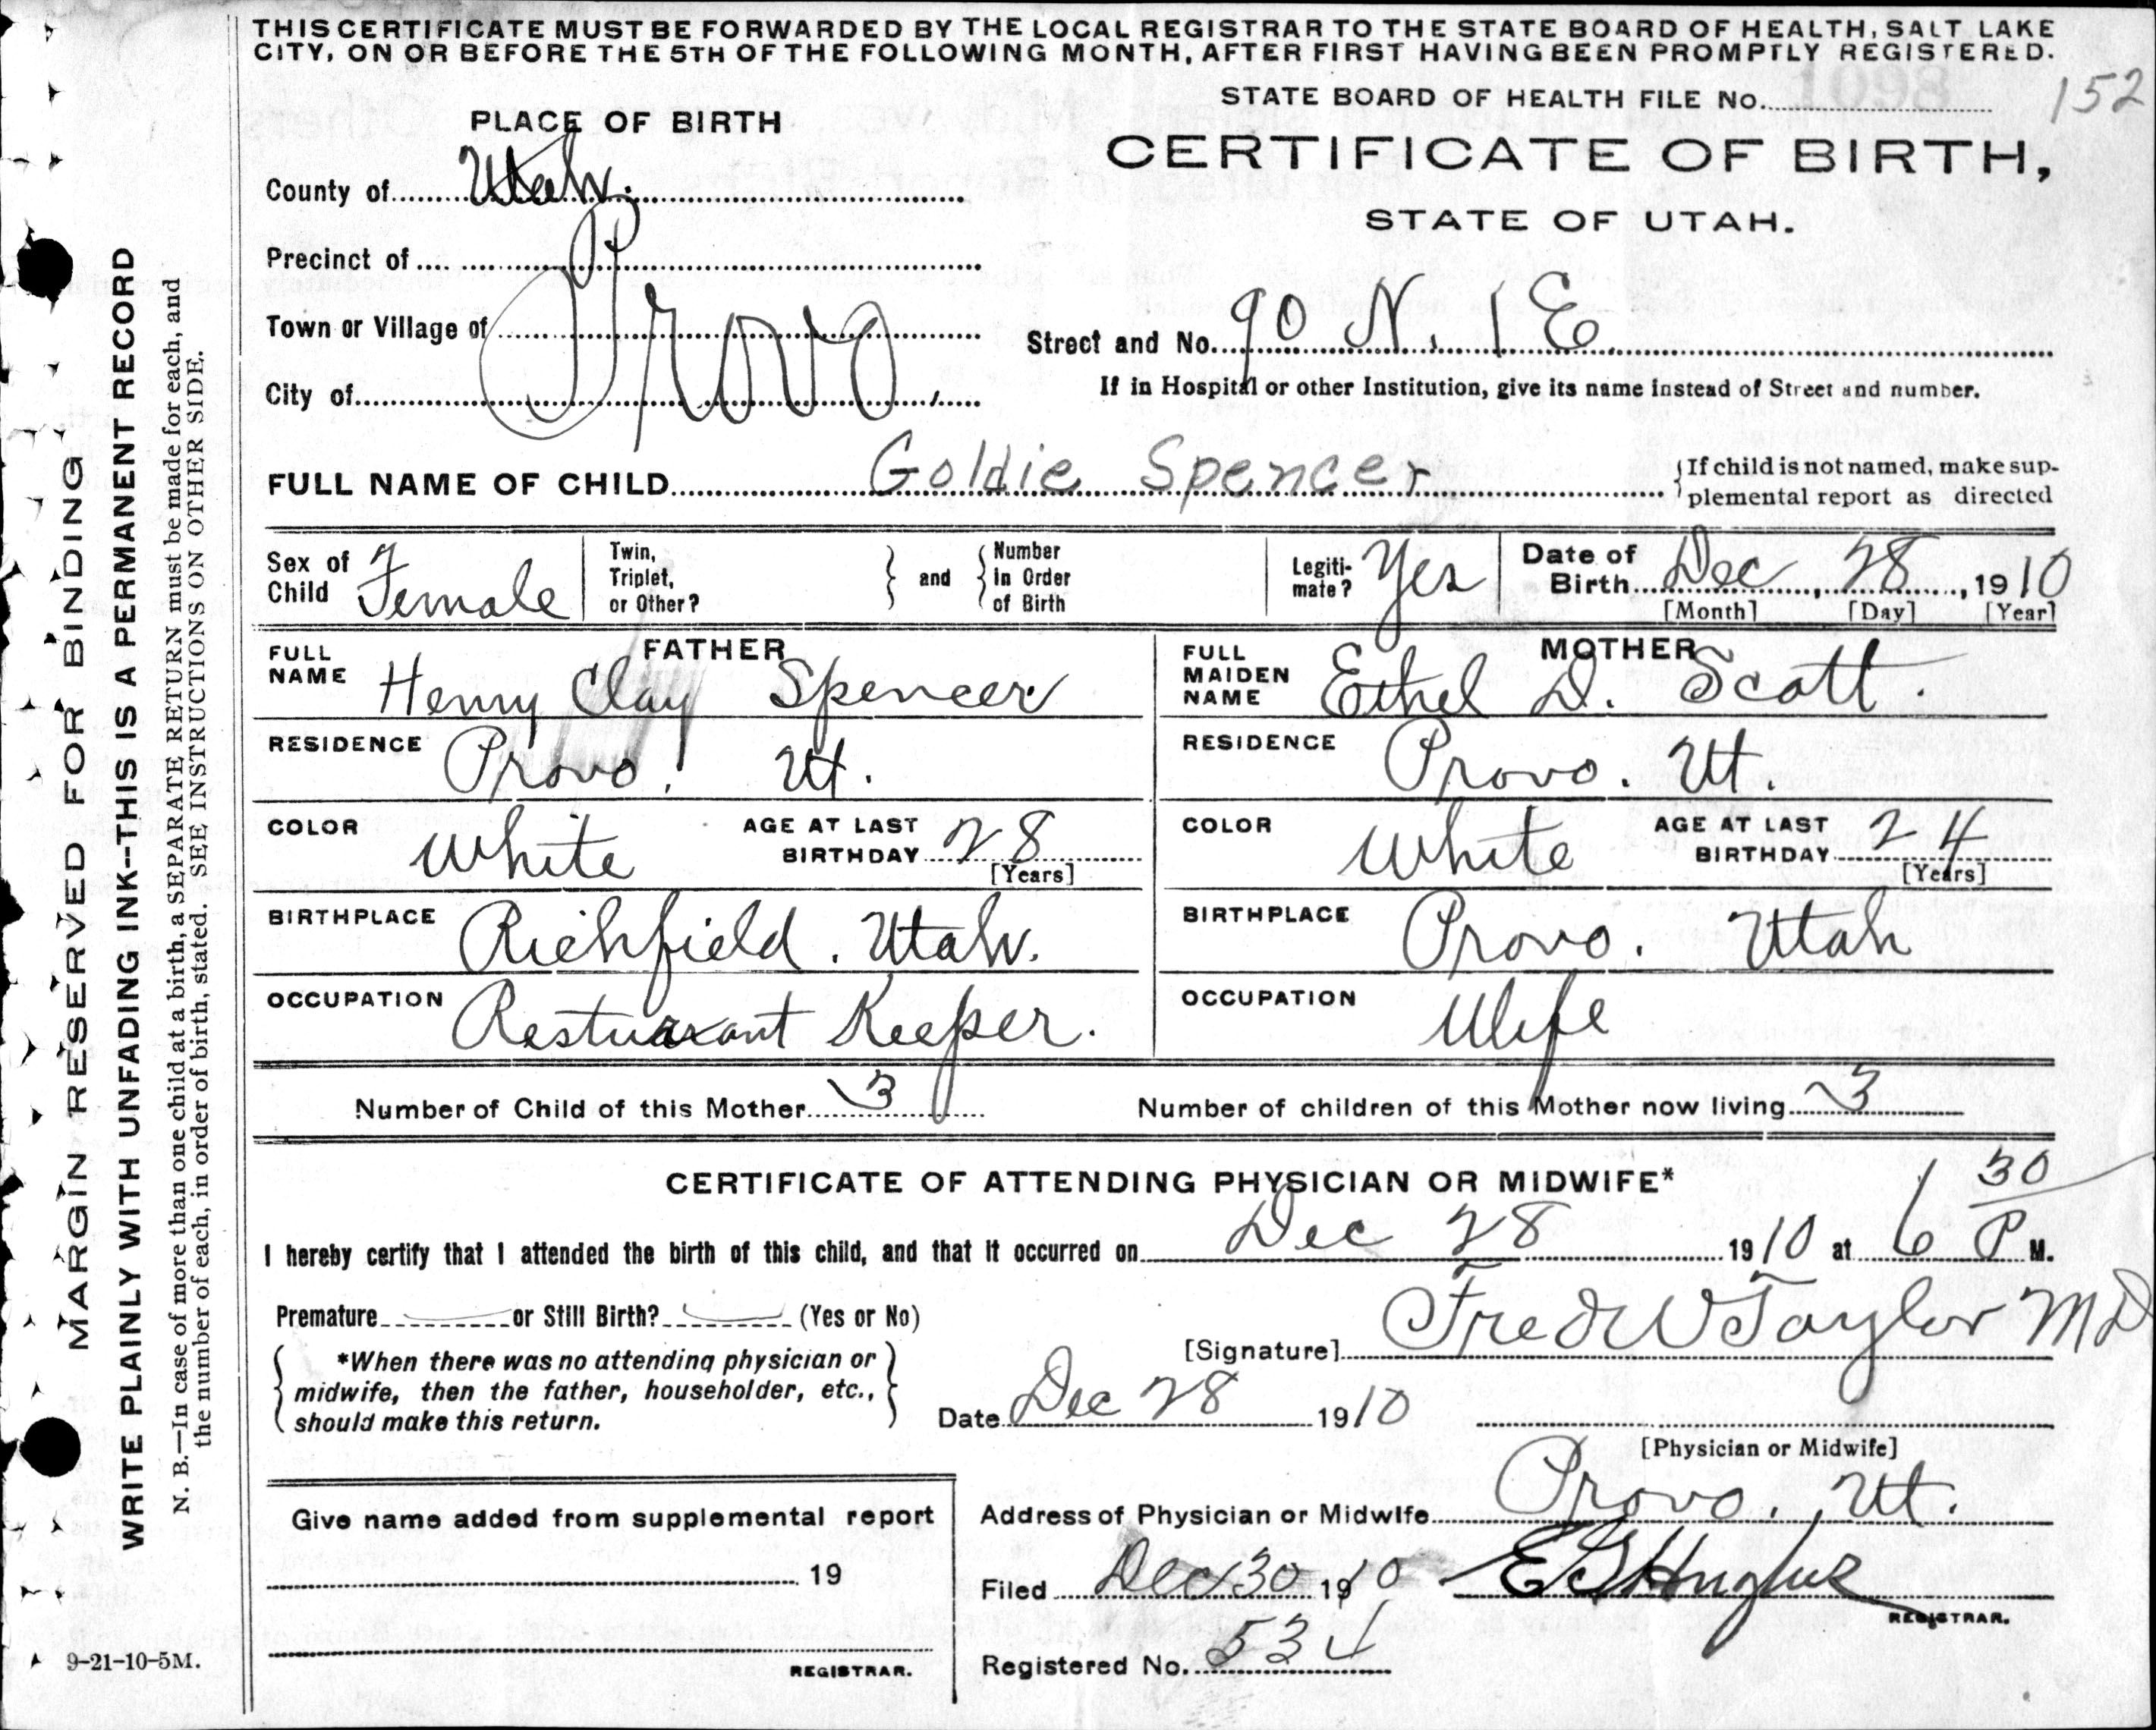 THIS CERTIFICATE MUST BE FORWARDED BY THE LOCAL REGISTRAR TO THE STATE BOARD OF HEALTH, SALT LAKE
CITY, ON OR BEFORE THE 5TH OF THE FOLLOWING MONTH, AFTER FIRST HAVING BEEN PROMPTLY REGISTERED.
STATE BOARD OF HEALTH FILE No. 152
PLACE OF BIRTH
CERTIFICATE OF BIRTH,
STATE OF UTAH.
County of Utah.
Precinct of
Town or Village of Provo
City of
Street and No. 90 N. 1 E.
If in Hospital or other Institution, give its name instead of Street and number.
FULL NAME OF CHILD Goldie Spencer
{If child is not named, make sup-
plemental report as directed
Sex of Child Female
Twin, Triplet, or Other? } and { Number in Order of Birth
Legiti-mate? Yes
Date of Birth Dec 28, 1910
[Month] [Day] [Year]
FATHER
FULL NAME Henry Clay Spencer
RESIDENCE Provo, Ut.
COLOR White AGE AT LAST BIRTHDAY 28 [Years]
BIRTHPLACE Richfield. Utah.
OCCUPATION Restuarant Keeper.
MOTHER
FULL MAIDEN NAME Ethel D. Scott.
RESIDENCE Provo. Ut.
COLOR White AGE AT LAST BIRTHDAY 24 [Years]
BIRTHPLACE Provo. Utah
OCCUPATION Wife
Number of Child of this Mother 3 Number of children of this Mother now living 3
CERTIFICATE OF ATTENDING PHYSICIAN OR MIDWIFE*
I hereby certify that I attended the birth of this child, and that it occurred on Dec 28 1910 at 6 30 P M.
Premature or Still Birth? (Yes or No)
[Signature] Fred W Taylor MD
*When there was no attending physician or
midwife, then the father, householder, etc.,
should make this return.
Date Dec 28 1910
[Physician or Midwife]
Give name added from supplemental report
19
REGISTRAR.
Address of Physician or Midwife Provo. Ut.
Filed Dec 30 1910 E G Hughes
REGISTRAR.
Registered No. 534
MARGIN RESERVED FOR BINDING
WRITE PLAINLY WITH UNFADING INK--THIS IS A PERMANENT RECORD
N. B.—In case of more than one child at a birth, a SEPARATE RETURN must be made for each, and
the number of each, in order of birth, stated. SEE INSTRUCTIONS ON OTHER SIDE.
9-21-10-5M.